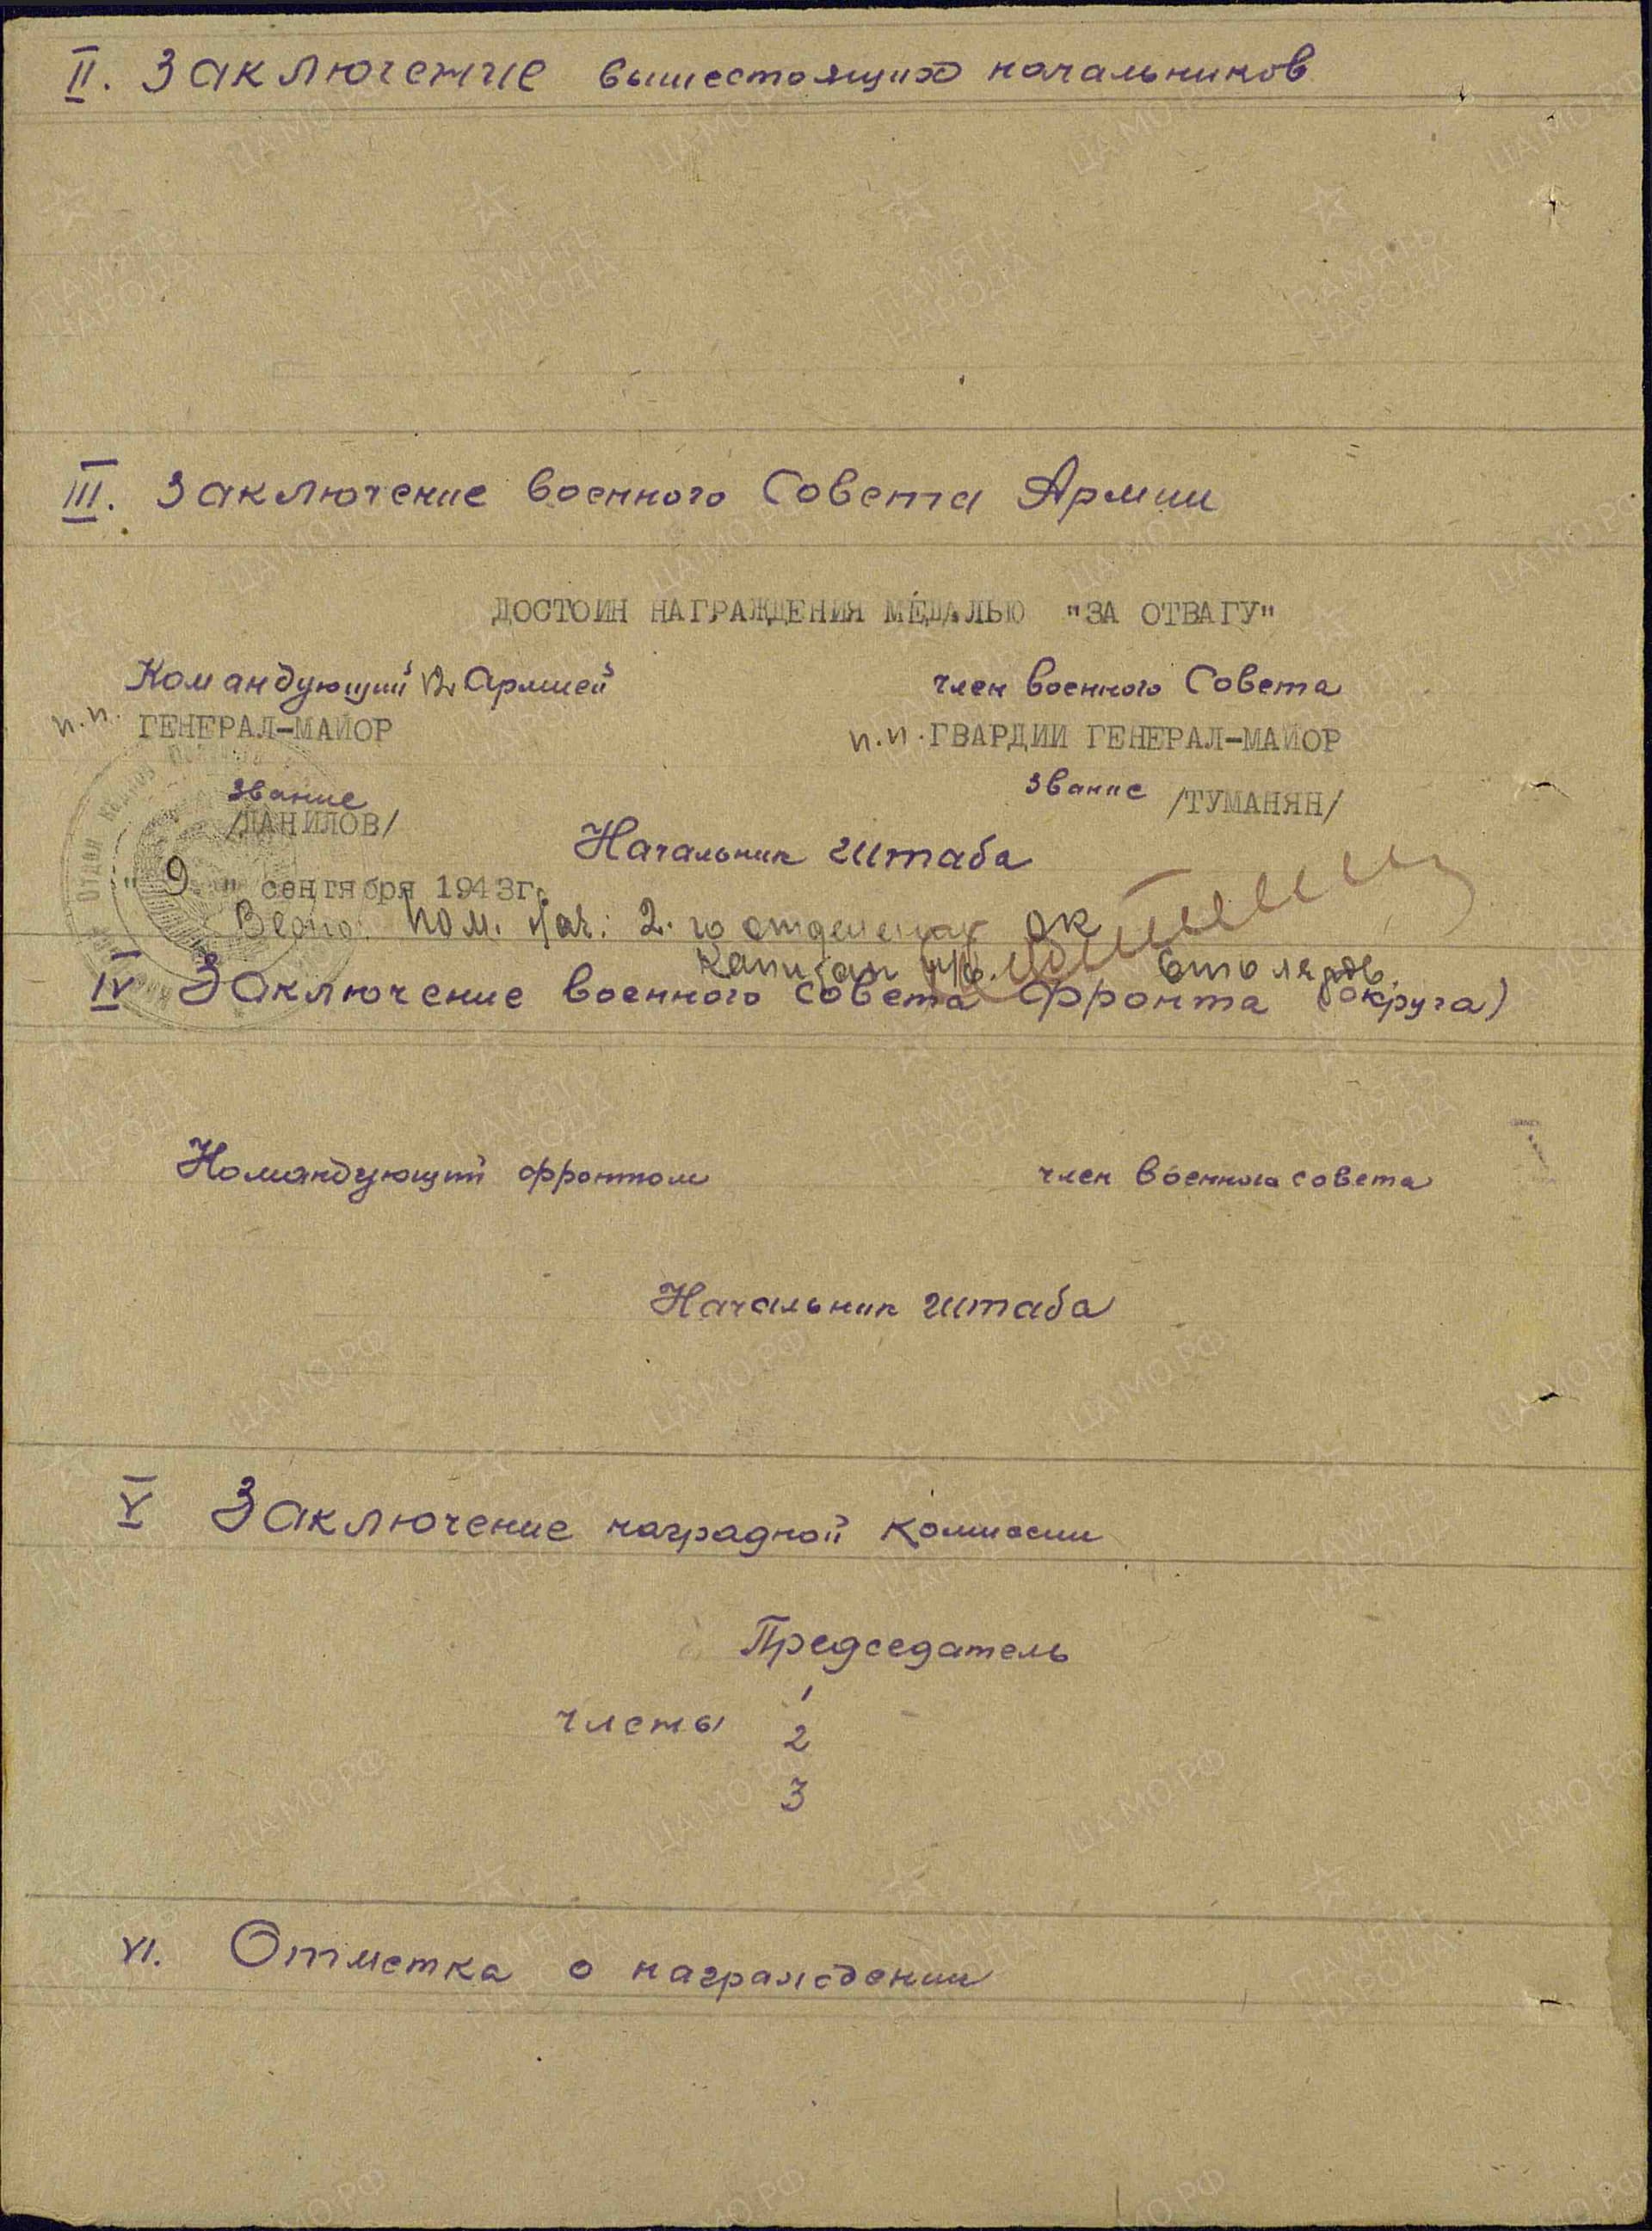 II. Заключение вышестоящих начальников
III. Заключение военного Совета Армии
ДОСТОИН НАГРАЖДЕНИЯ МЕДАЛЬЮ "ЗА ОТВАГУ"
Командующий 12 Армией
член военного Совета
п.п. ГЕНЕРАЛ-МАЙОР
п.п. ГВАРДИИ ГЕНЕРАЛ-МАЙОР
звание
звание /ТУМАНЯН/
/ДАНИЛОВ/
Начальник штаба
" 9 " сентября 1943г.
Верно: Пом. Нач. 2-го отделения ОК
Капитан Столяров
IV Заключение военного совета Фронта (округа)
Командующий фронтом
член военного совета
Начальник штаба
V Заключение наградной комиссии
Председатель
члены 1
2
3
VI. Отметка о награждении
ПАМЯТЬ НАРОДА
ЦАМО.РФ